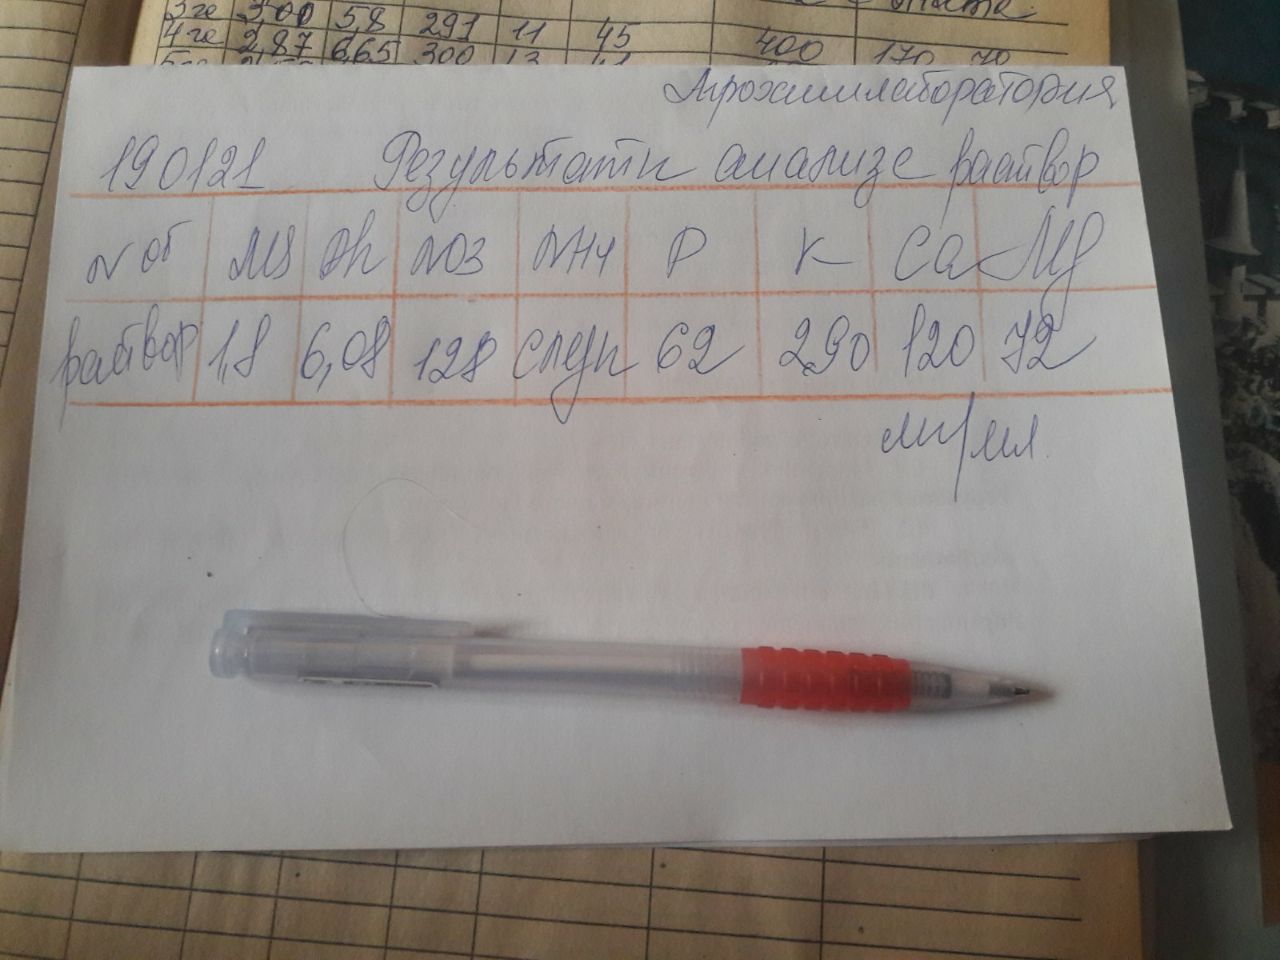 3 га 3,00 5,8 291 11 45
4 га 2,87 6,65 300 13 400 170 70
Агрохимлаборатория
190121 Результати анализе раствор
N об MS Ph NO3 NH4 P K Ca Mg
раствор 1,8 6,08 128 следи 62 290 120 72
мг/мл.